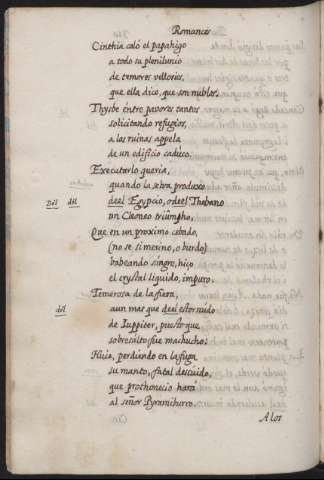 Romances
Cinthia caló el papahigo
a todo su plenilunio
de temores vellorios,
que ella dice, que son nublos.
Thysbe entre pavores tantos
solicitando refugios,
a las ruinas appela
de un edificio caduco.
Executarlo queria,
quando la selva produxo
Del del del Egypcio, ò del Thebano
un Cleoneo triũmpho,
Que en un proximo cebado,
(no se si merino, o burdo)
babeando sangre, hizo
el crystal liquido, impuro.
Temerosa de la fiera,
del aun mas que del estornudo
de Iuppiter, puesto que
sobresalto fue machucho:
Huie, perdiendo en la fuga
su manto, fatal descuido,
que prothonecio hara
al señor Pyramiburro.
A los